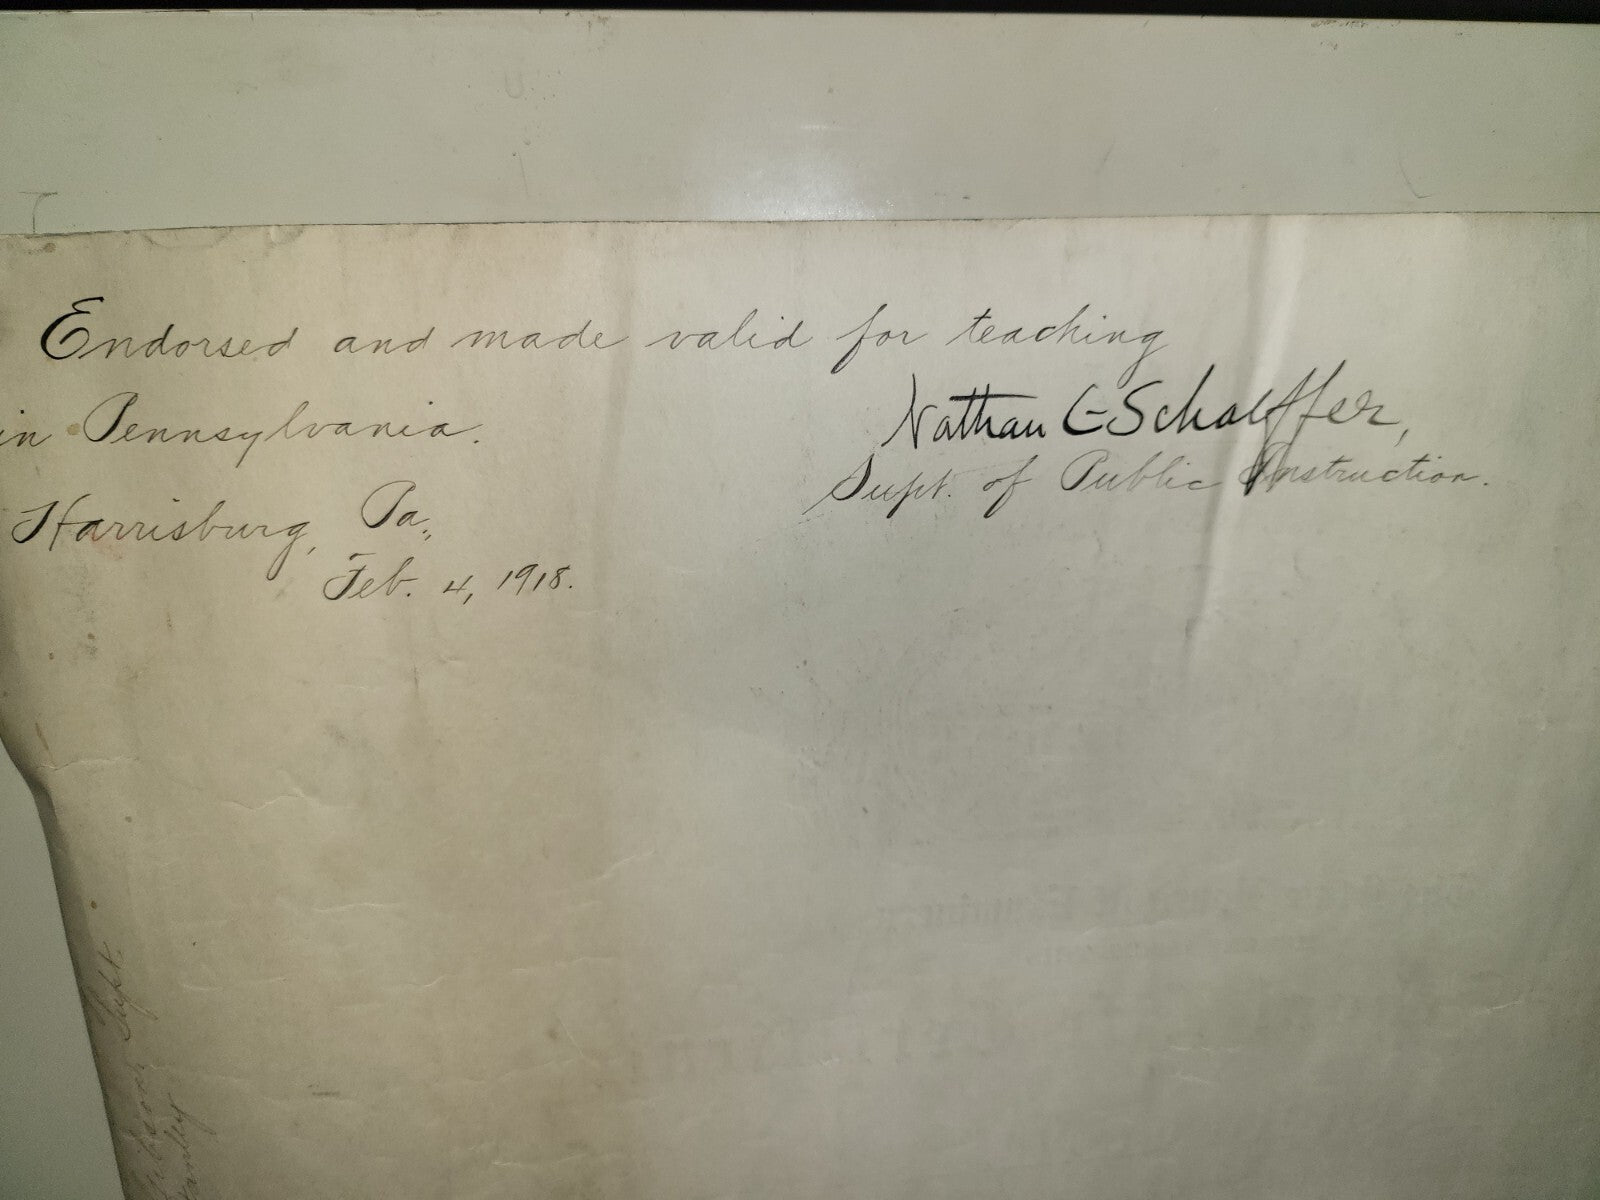 Endorsed and made valid for teaching
in Pennsylvania.
Nathan C Schaeffer,
Supt. of Public Instruction.
Harrisburg, Pa.,
Feb. 4, 1918.
Supt.